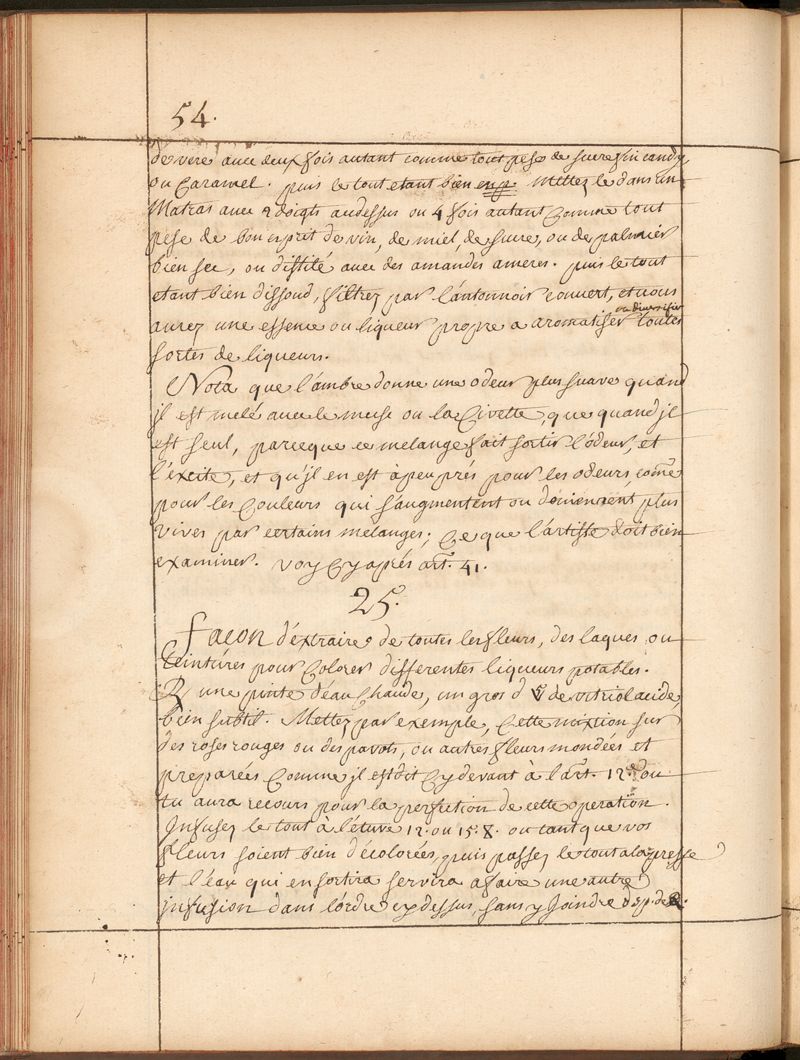 54.
de vere avec deux fois autant comme tout pese de sucre fin candy
ou Caramel. puis le tout etant bien enp. Mettez le dans un
Matras avec 2 doigts audessus ou 4 fois autant Comme tout
pese de bon esprit de vin, de miel, de sucre, ou de palmier
bien sec, ou distilé avec des amandes ameres. puis le tout
etant bien dissoud, filtrez par l'antonnoir couvert, et vous
ou diversifier
aurez une essence ou liqueur propre a aromatiser toutes
sortes de liqueurs.
Nota que l'ambre donne une odeur plus suave quand
jl est melé avec le musc ou la Civette, que quand jl
est seul, parceque ce melange fait sortir l'odeur, et
l'éxcite, et qu'jl en est àpeuprés pour les odeurs comẽ
pour les Couleurs qui s'augmentent ou deviennent plus
vives par certains melanges; Ce que l'artiste doit bien
examiner. Voy Cyaprés art. 41.
25.
Façon d'éxtraire de toutes les fleurs, des laques ou
teintures pour Colorer differentes liqueurs potables.
℞ une pinte d'eau Chaude, un gros d de vitriol acide,
bien subtil. Mettez par exemple, Cette mixtion sur
des roses rouges ou des pavots, ou autres fleurs mondées et
preparées Comme jl est dit Cy devant à l'art. 12e. ou
tu aura recours pour la perfection de cette operation.
Jnfusez le tout à l'étuve 12. ou 15. . ou tant que vos
fleurs soient bien décolorées, puis passez le tout a la presse
et l'eau qui en sortira servira a faire une autre
jnfusion dans l'ordre cy dessus, sans y Joindre d'esp. de .